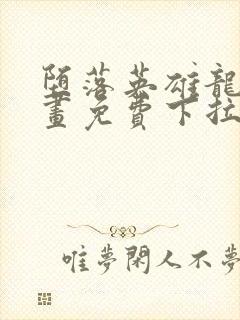 堕落英雄龍
畫免費下拉
唯夢閑人不夢